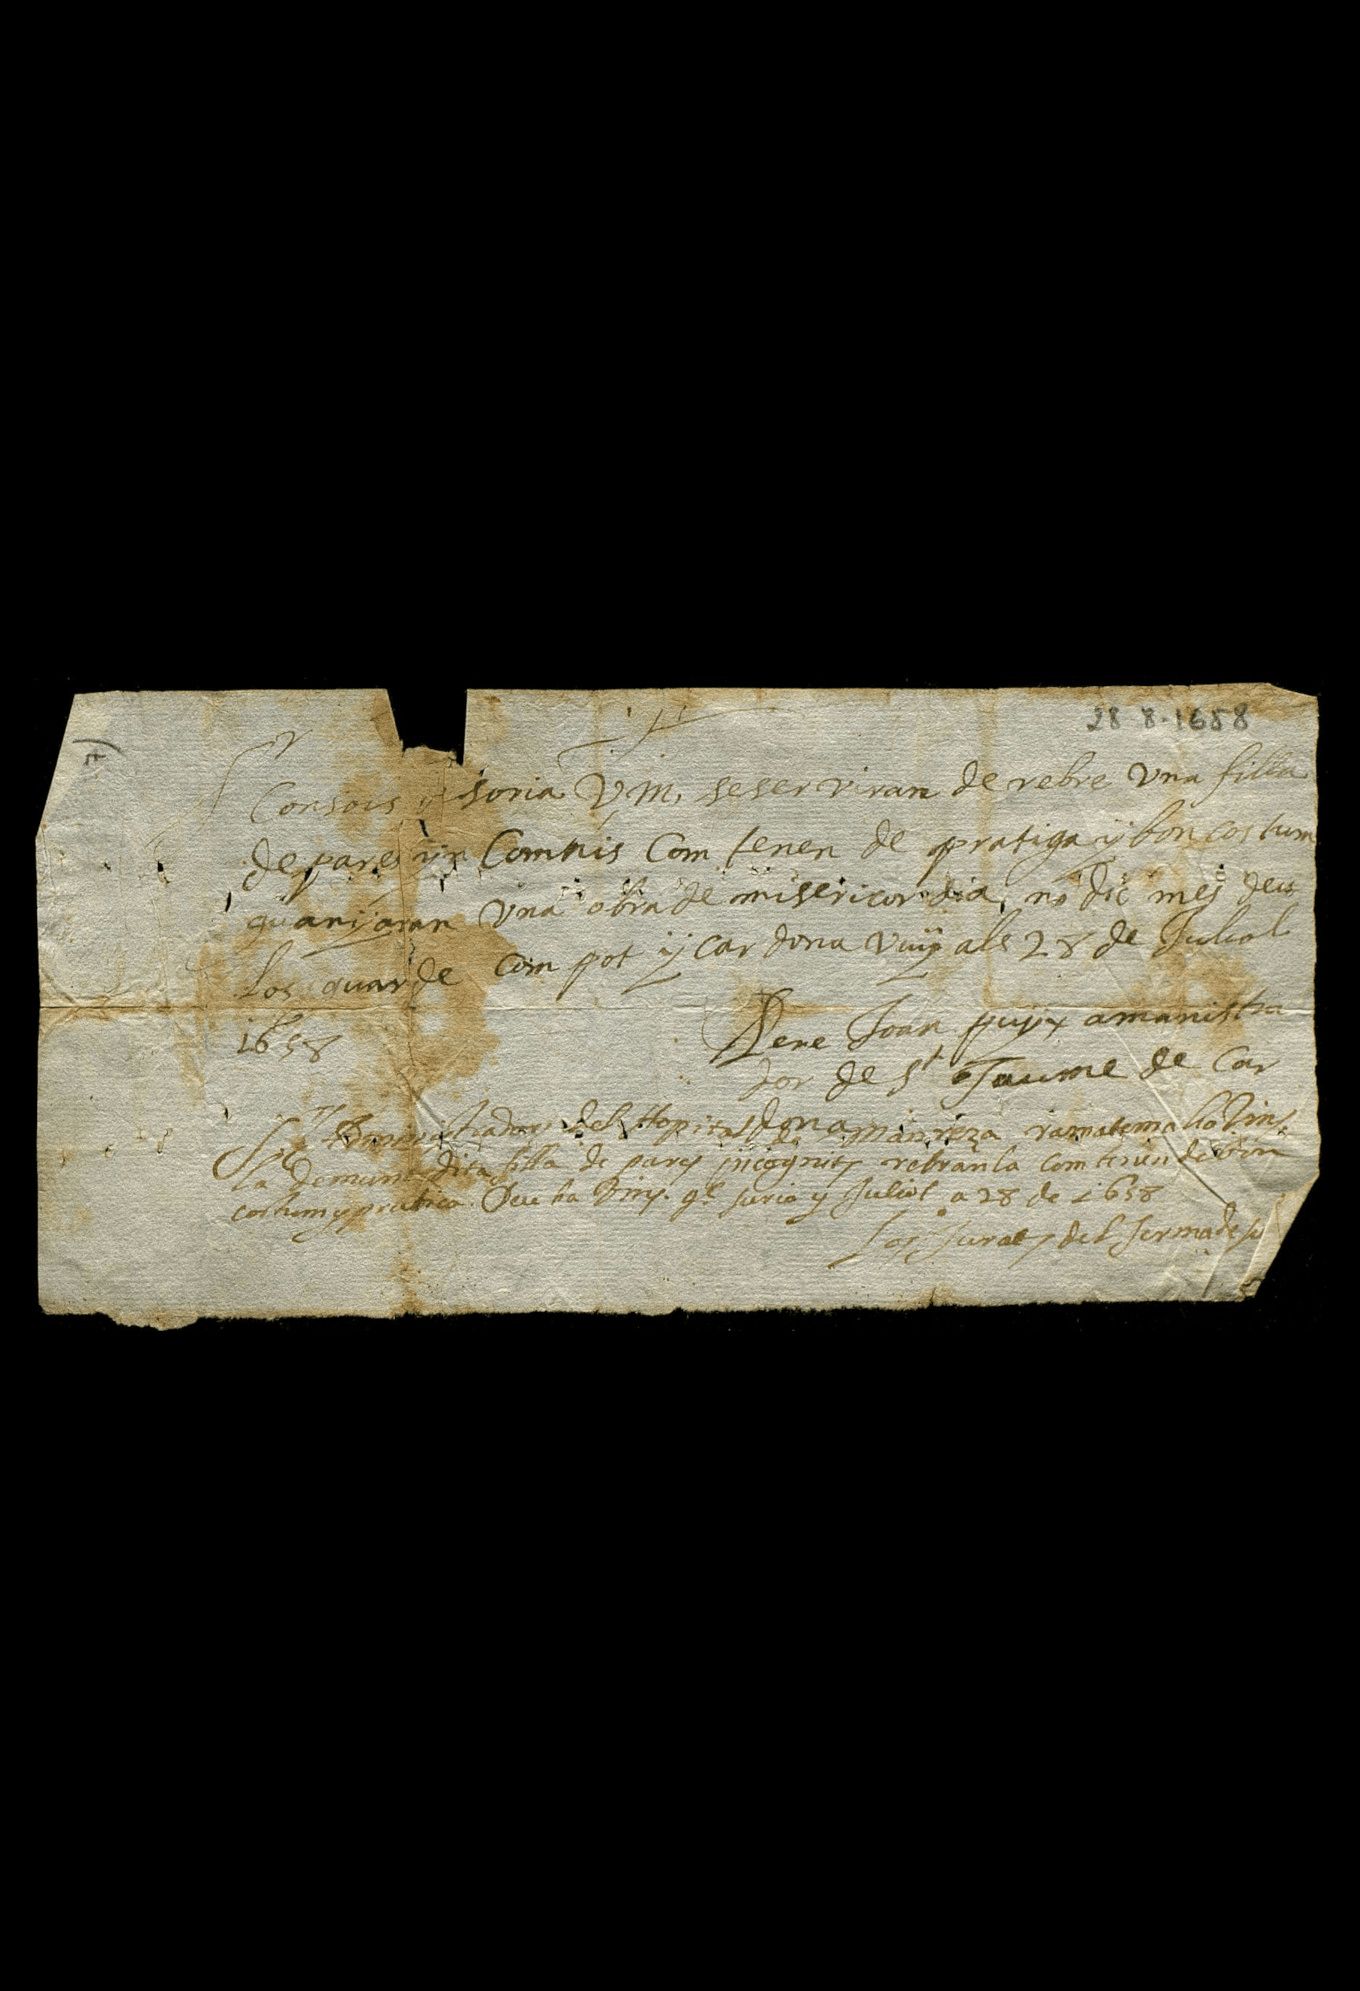 28 8·1658
Consols y soria V.M. se ser viran de rebre Vna filla
de pares yn Comnis Com tenen de pratiga y bon costum
guanyaran Vna obra de misericordia, no dic mes deu
los guarde Com pot y cardona vuy als 28 de Juliol
1658
Pere Joan puyx amanistra
dor de St Jaume de Car
dona
Administradors del Hopital de Manreza
la demunt dita filla de pares incognits rebranla com tenen de bon
costum y pratica. Deu ls Vms. gde suria y Juliol a 28 de 1658
Los Jurats del terma de